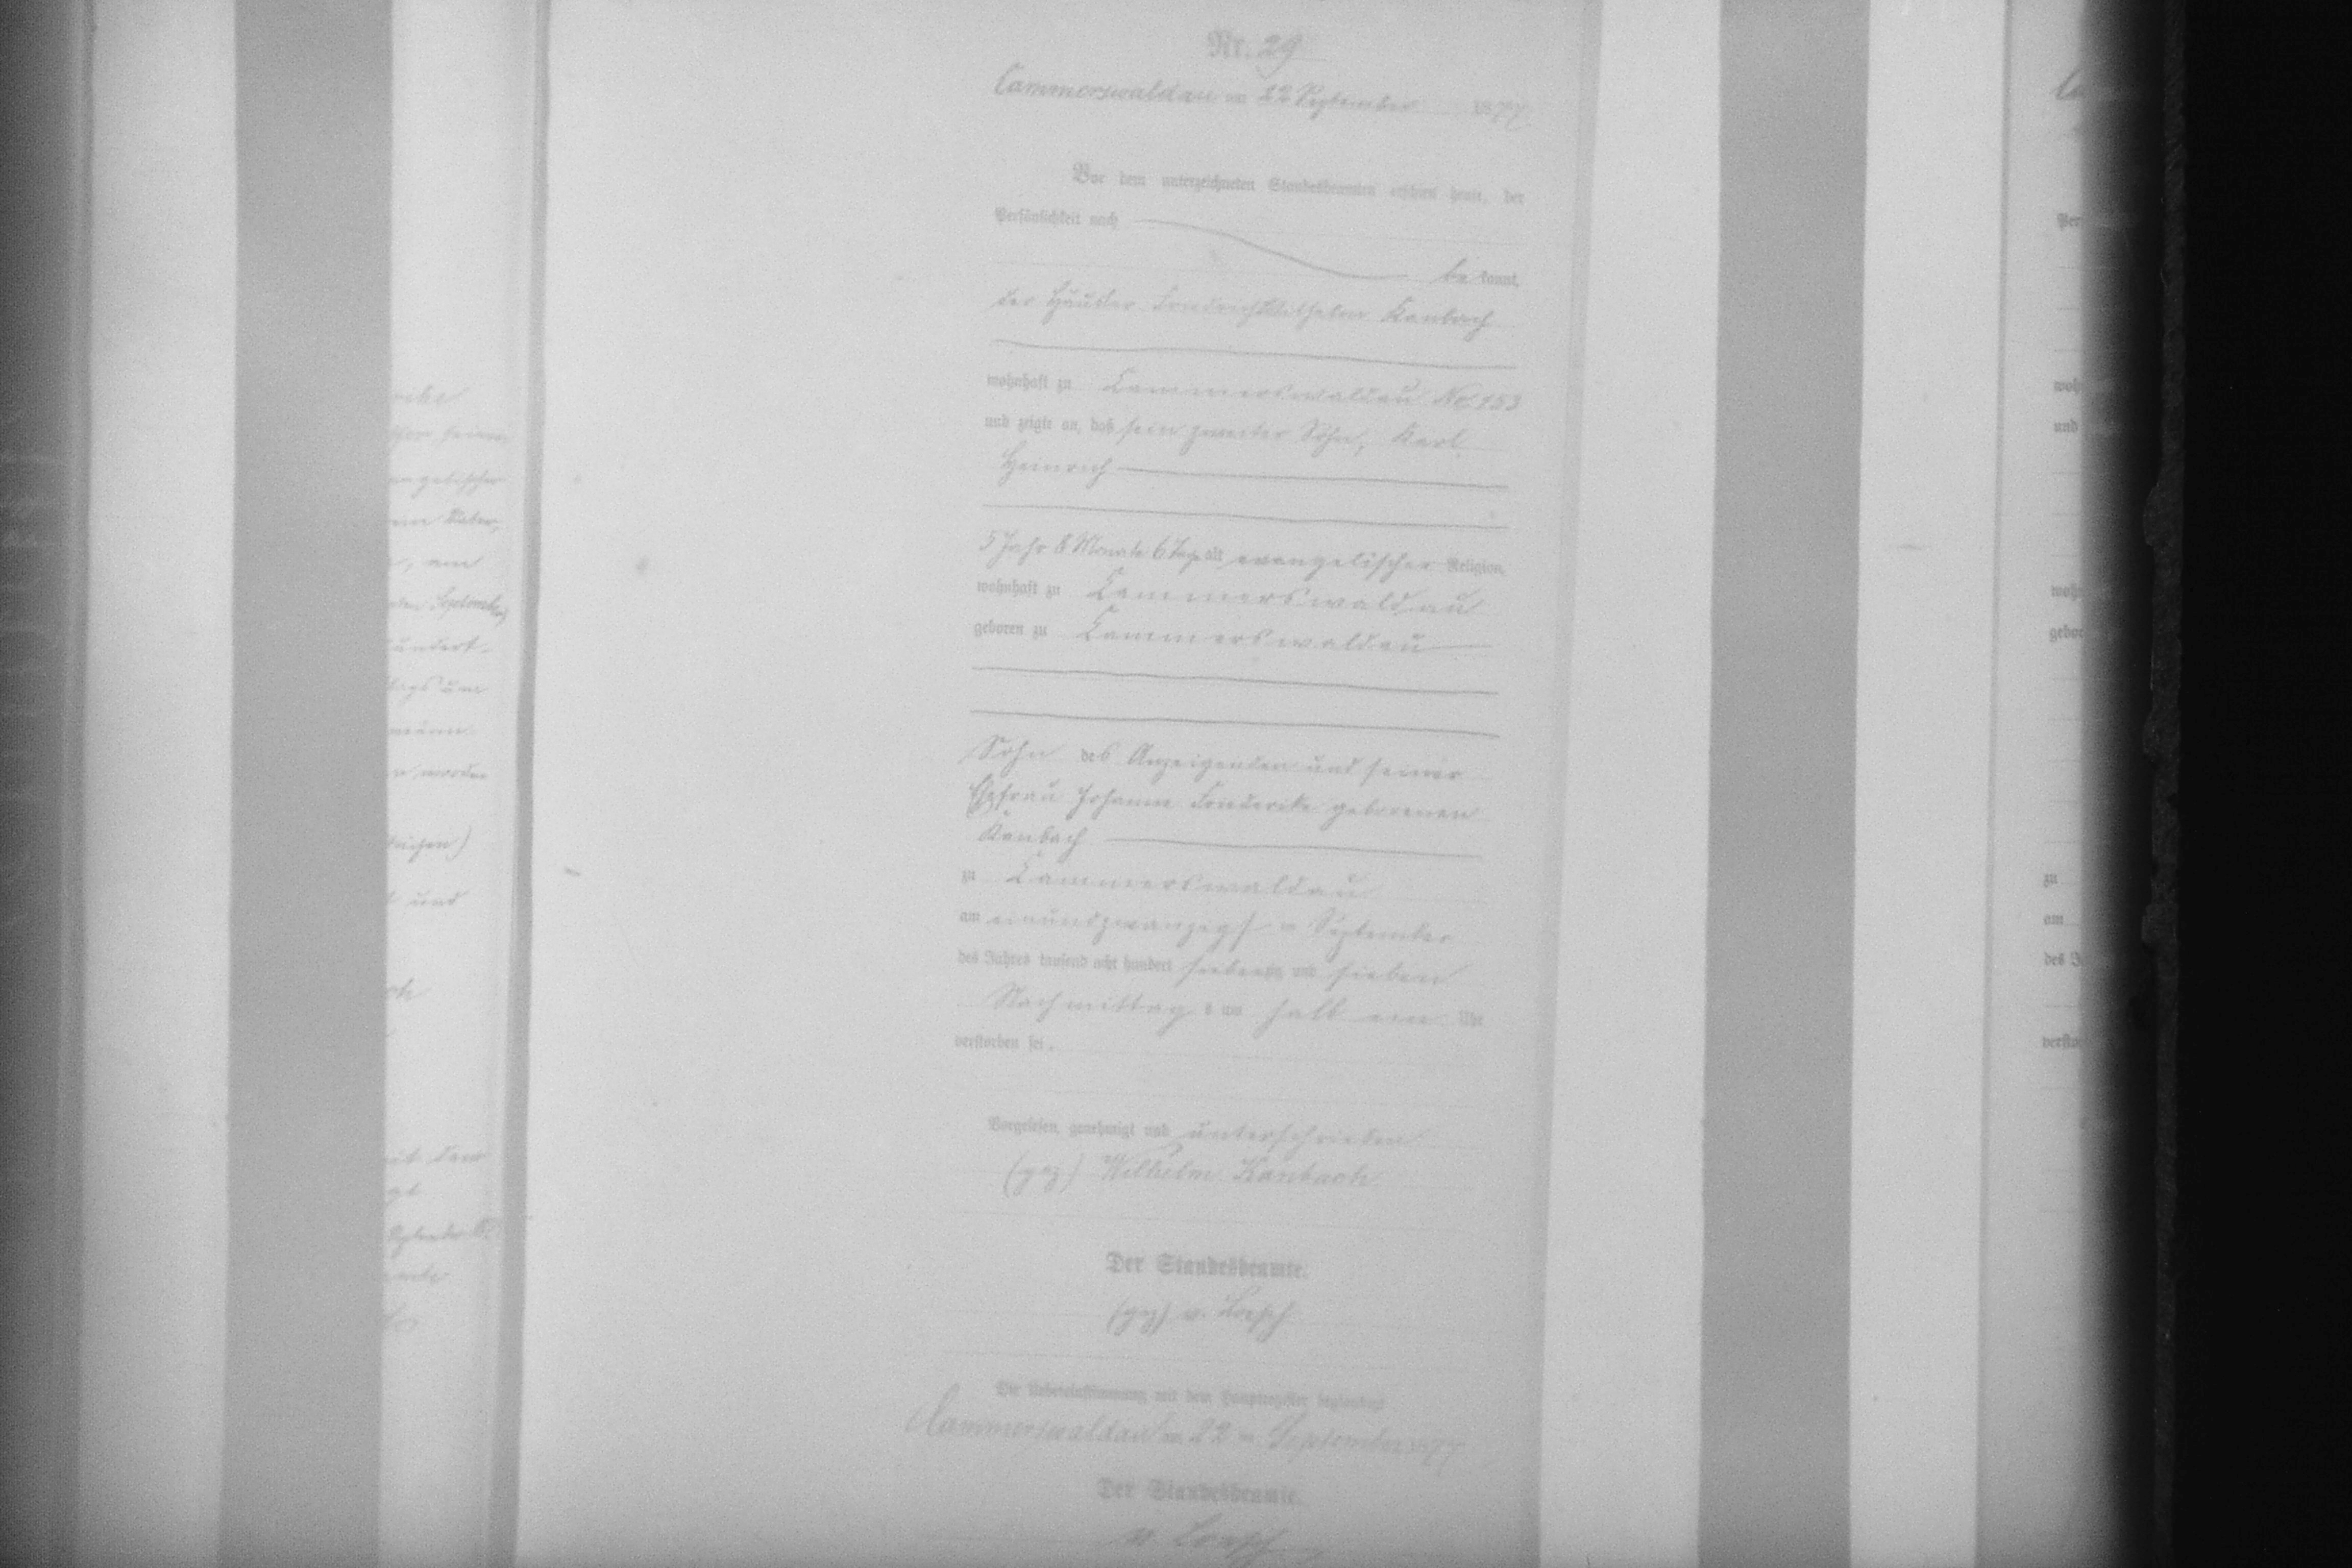 Nr. 29
Cammerswaldau am 22 September 1877
Vor dem unterzeichneten Standesbeamten erschien heute, der
Persönlichkeit nach
bekannt,
der Häusler Friedrich Wilhelm Kanbach
wohnhaft zu Cammerswaldau No. 153
und zeigte an, daß sein zweiter Sohn, Karl
Heinrich
5 Jahr 8 Monate 6 Tage alt, evangelischer Religion,
wohnhaft zu Cammerswaldau
geboren zu Cammerswaldau
Sohn des Anzeigenden und seiner
Ehefrau Johanne Friederike geborenen
Kanbach
zu Cammerswaldau
am einundzwanzigsten September
des Jahres tausend acht hundert siebenzig und sieben
Nachmittags um halb ein Uhr
verstorben sei.
Vorgelesen, genehmigt und unterschrieben
(gez) Wilhelm Kanbach
Der Standesbeamte.
(gez) v. Loesch
Die Uebereinstimmung mit dem Hauptregister beglaubigt
Cammerswaldau am 22 ten September 1877
Der Standesbeamte.
v. Loesch